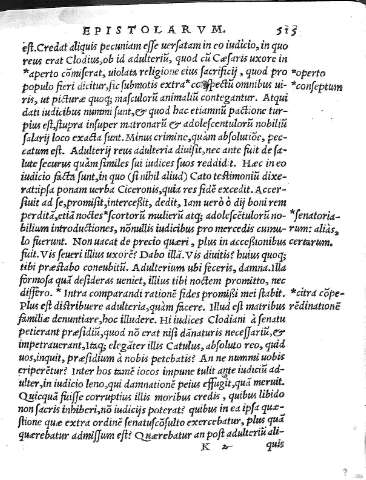 EPISTOLARVM. 515
est. Credat aliquis pecuniam esse uersatam in eo iudicio, in quo
reus erat Clodius, ob id adulteriũ, quod cũ Cæsaris uxore in
*aperto cõmiserat, uiolata religione eius sacrificij, quod pro *operto
populo fieri dicitur, sic submotis extra *cõspectũ omnibus ui- *conseptum
ris, ut picturæ quoq; masculorũ animaliũ contegantur. Atqui
dati iudicibus nummi sunt, & quod hac etiamnũ pactione tur-
pius est, stupra insuper matronarũ & adolescentulorũ nobiliũ
salarij loco exacta sunt. Minus crimine, quàm absolutiõe, pec-
catum est. Adulterij reus adulteria diuisit, nec ante fuit de sa-
lute securus quàm similes sui iudices suos reddidit. Hæc in eo
iudicio facta sunt, in quo (si nihil aliud) Cato testimoniũ dixe-
rat. ipsa ponam uerba Ciceronis, quia res fidẽ excedit. Accer-
siuit ad se, promisit, intercessit, dedit, Iam uerò ô dij boni rem
perditã, etiã noctes *scortorũ mulierũ atq; adolescẽtulorũ no- *senatoria-
bilium introductiones, nõnullis iudicibus pro mercedis cumu- rum: aliâs,
lo fuerunt. Non uacat de precio quæri, plus in accessionibus certarum.
fuit. Vis seueri illius uxorẽ? Dabo illã. Vis diuitis? huius quoq;
tibi præstabo cõnubitũ. Adulterium ubi feceris, damna. Illa
formosa quã desideras ueniet, illius tibi noctem promitto, nec
differo. *Intra comparandi rationẽ fides promissi mei stabit. *citra cõpe-
Plus est distribuere adulteria, quàm facere. Illud est matribus rẽdinationẽ
familiæ denuntiare, hoc illudere. Hi iudices Clodiani à senatu
petierant præsidiũ, quod nõ erat nisi dãnaturis necessariũ, &
impetrauerant, Itaq; elegãter illis Catulus, absoluto reo, quid
uos, inquit, præsidium à nobis petebatis? An ne nummi uobis
eriperẽtur? Inter hos tamẽ iocos impune tulit ante iudiciũ ad-
ulter, in iudicio leno, qui damnationẽ peius effugit, quã meruit.
Quicquã fuisse corruptius illis moribus credis, quibus libido
non sacris inhiberi, nõ iudicijs poterat? quibus in ea ipsa quæ-
stione quæ extra ordinẽ senatuscõsulto exercebatur, plus quã
quærebatur admissum est? Quærebatur an post adulteriũ ali-
K 2 quis